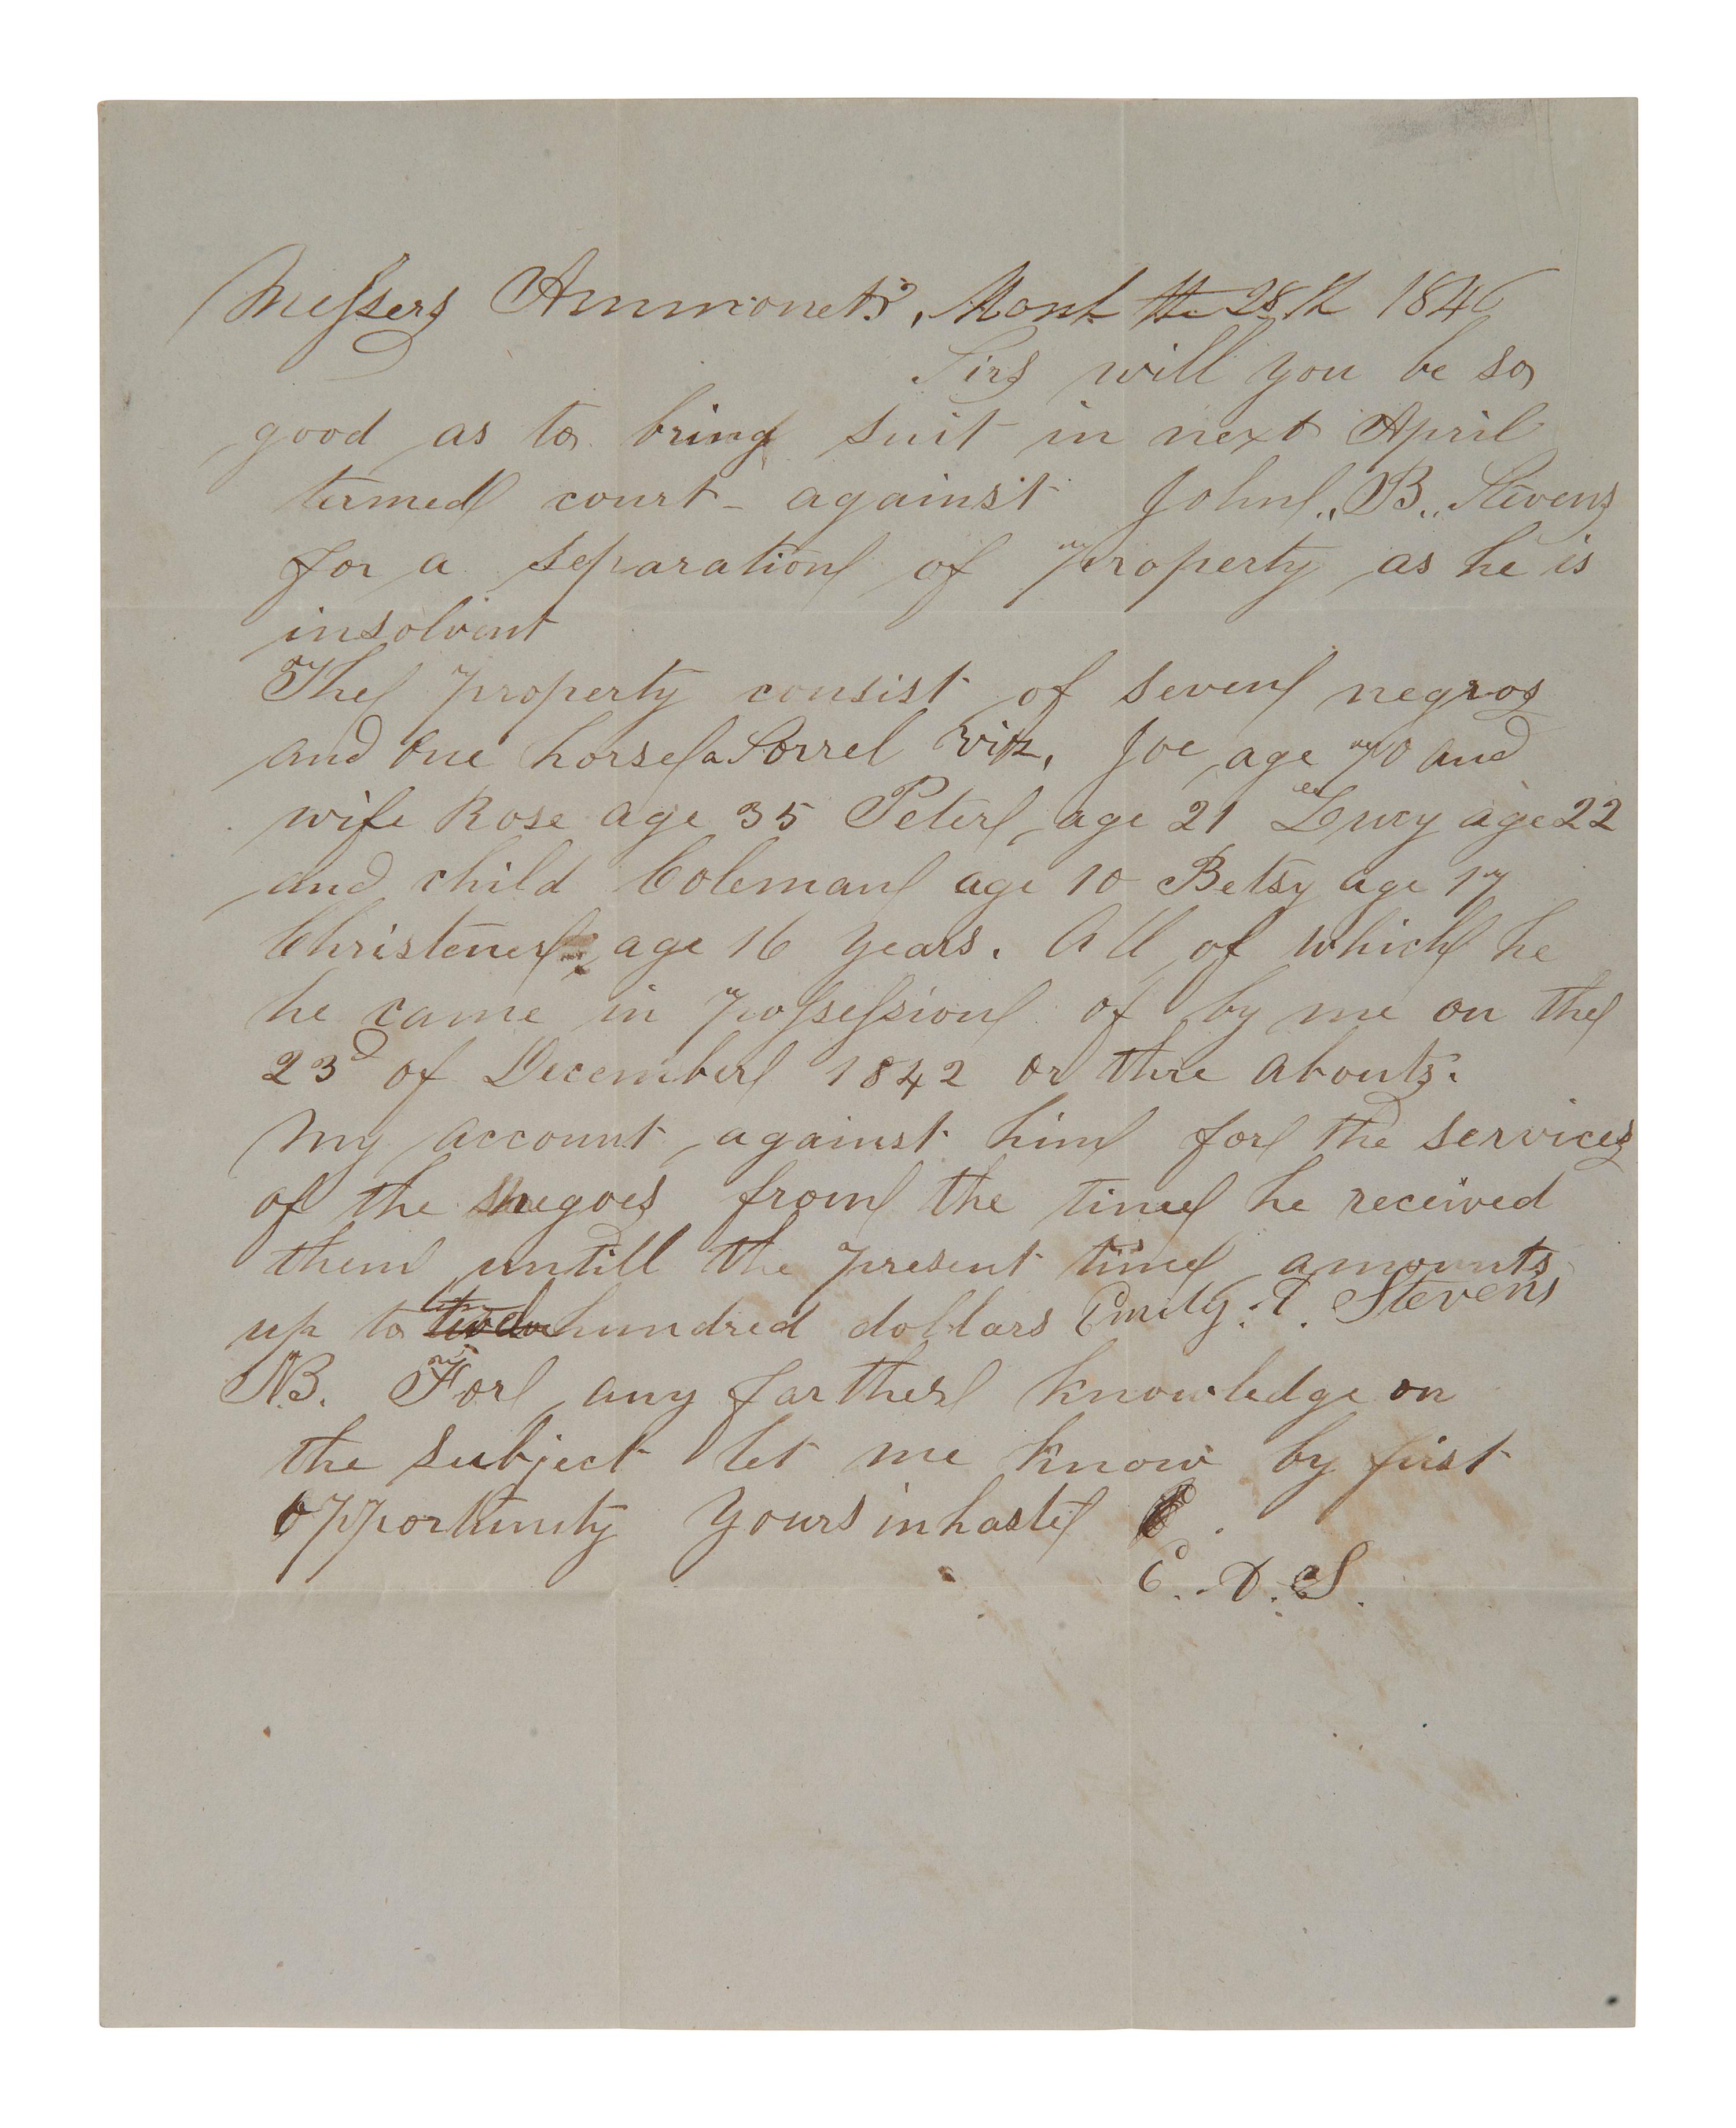 Messers Ammonett, the 28th 1846
Sirs will you be so
good as to bring suit in next April
termed court - against John,, B,, Stevens
for a separation of property as he is
insolvent
The property consist of seven negros
and one horse a Sorrel viz, Joe age 70 and
wife Rose age 35 Peter age 21 Lucy age 22
and child Coleman age 10 Betsy age 17
Christener age 16 years. All of which he
he came in possession of by me on the
23d of December 1842 or there abouts.
My account against him for the services
of the negoes from the time he received
them untill the present time amounts
up to hundred dollars Emily. Stevens
NB. For any farther knowledge on
the subject let me know by first
opportunity yours in haste
E. D. S.